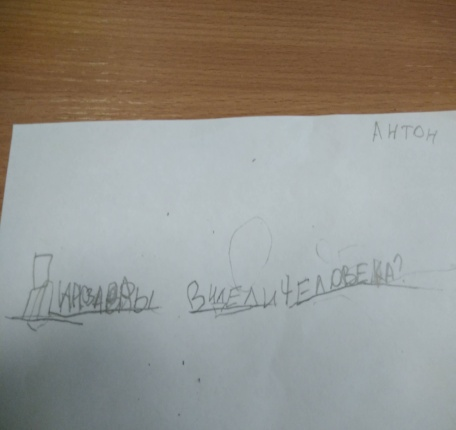 АНТОН
ДИНОЗАВРЫ ВИДЕЛИ ЧЕЛОВЕКА?